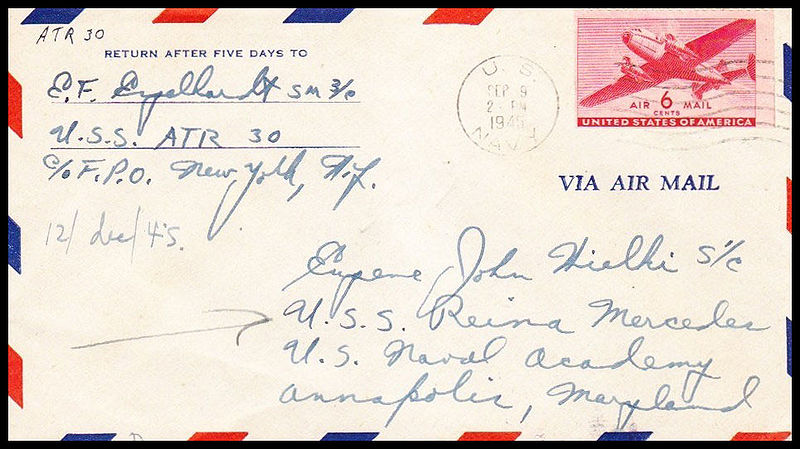 ATR 30
RETURN AFTER FIVE DAYS TO
E.F. Engelhardt SM 3/c
U.S.S. ATR 30
c/o F.P.O. New York, N.Y.
12/dec/45.
U.S.
SEP 9
2 PM
1945
NAVY
AIR 6 MAIL
CENTS
UNITED STATES OF AMERICA
VIA AIR MAIL
Eugene John Hielki S1/c
U.S.S. Reina Mercedes
U.S. Naval Academy
Annapolis, Maryland